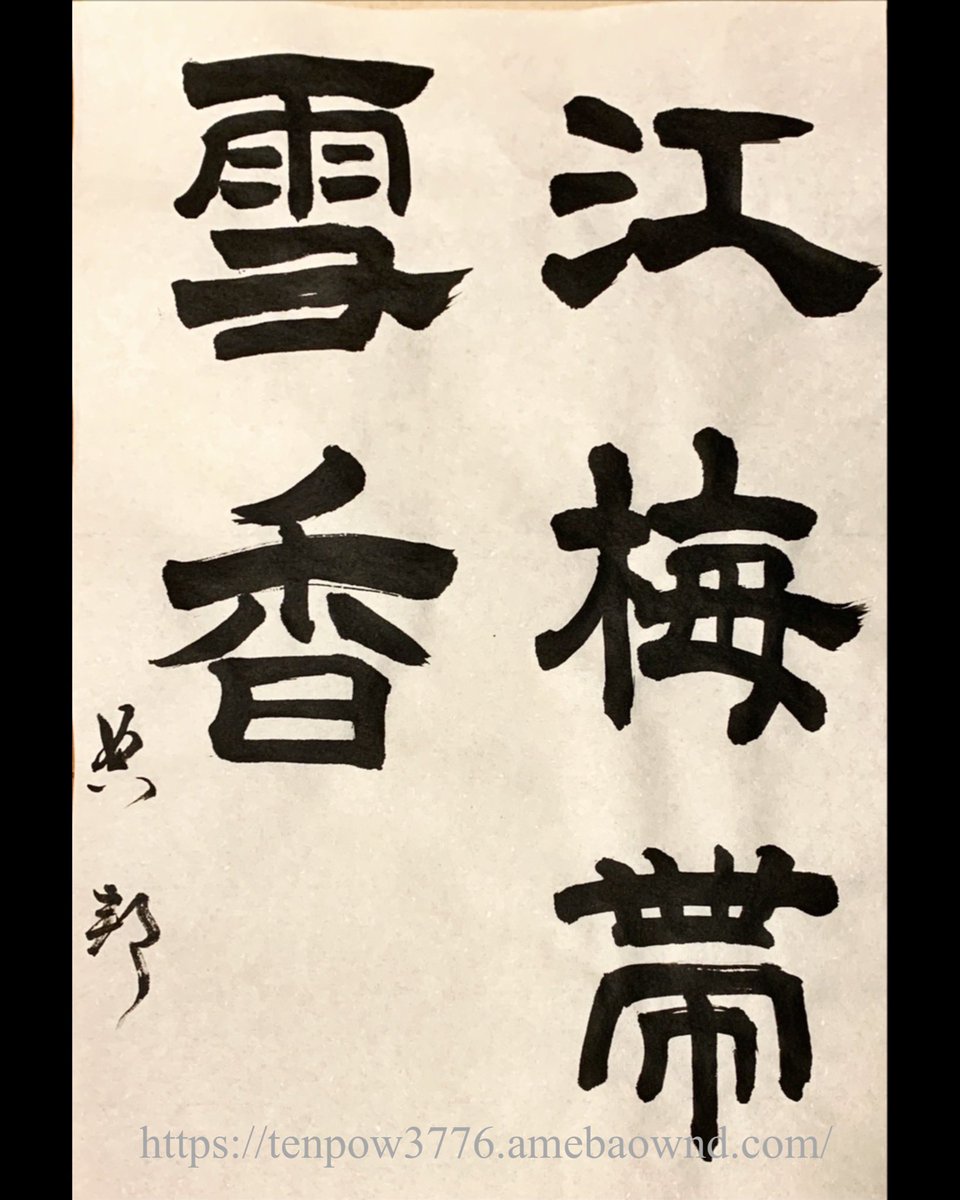 江梅帶
雪香
典邦
https://tenpow3776.amebaownd.com/